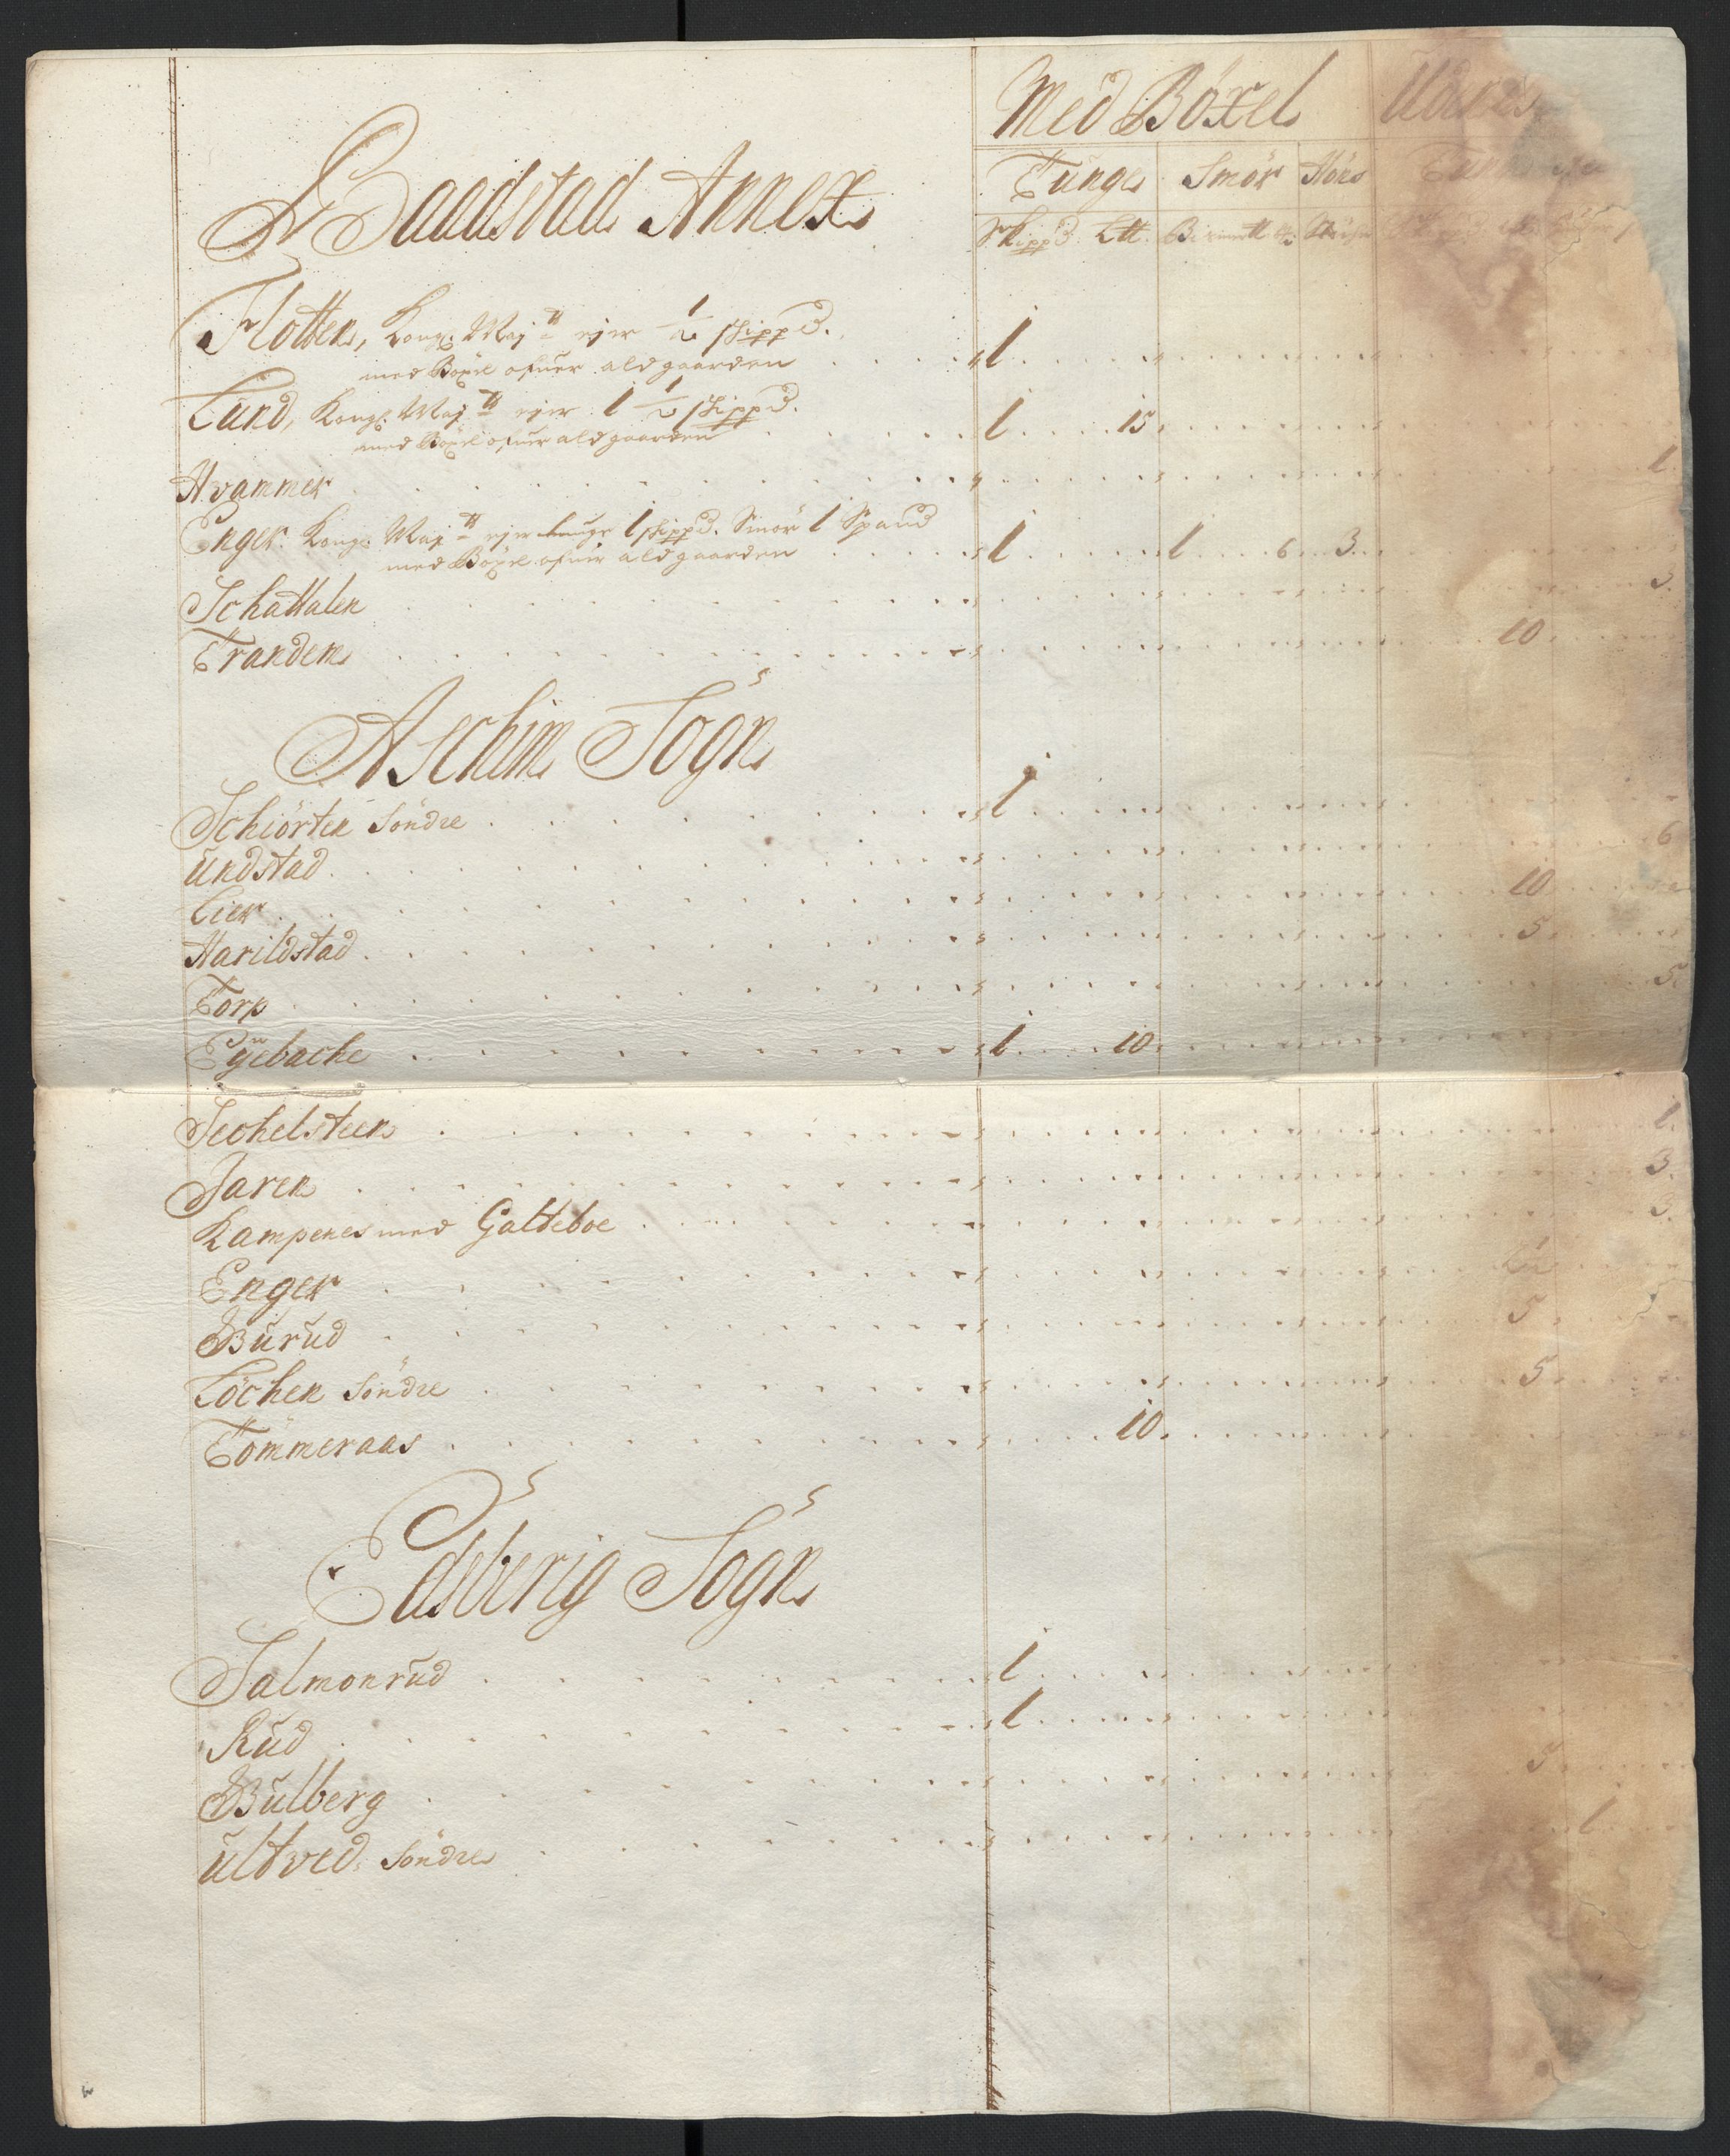 Med Böxel
Tunge Smör Höns
Skippd. L℔.
Baadstad Annex
Flotten, Kongl. Maj tt ejer 1/2 skippd.
med Böxel ofuer ald gaarden 1
Lund, Kongl. Maj tt ejer 1 1/2 skippd.
med Böxel ofuer ald gaarden 1 15
Hvammer 1
Enger. Kongl. Maj tt ejer tunge 1 skippd. Smör 1 Spand
med Böxel ofuer ald gaarden 1 1 6 3
Schattalen 3
Trandem 10
Aschim Sogn
Schiörten Söndre 1
Undstad 6
Lier 10
Harildstad 5
Torp 5
Eyebache 1 10
Sechelsteen 1
Jaren 3
Kampenes med Galteboe 3
Enger
Burud 5
Löchen Söndre 5
Tömmeraas 10
Edsberig Sogn
Salmonrud 1
Rud 1
Bulberg 5
Ultved Söndre 1